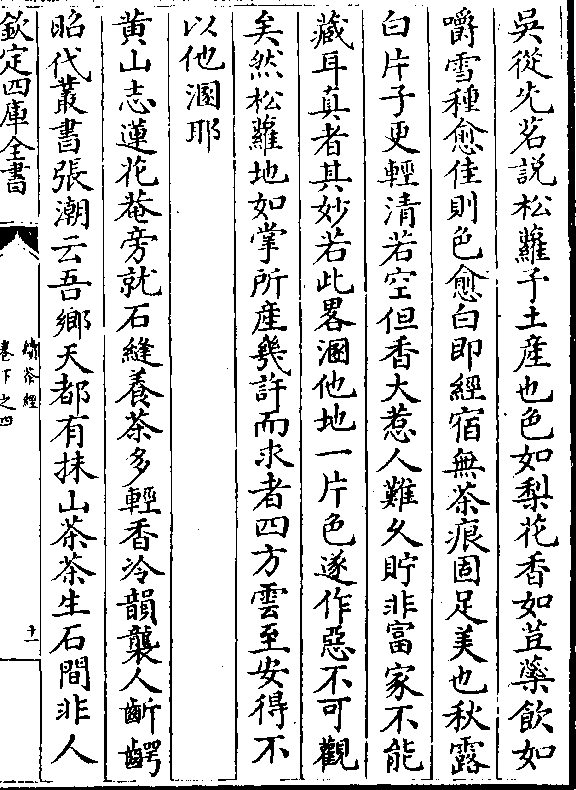 吳從先茗說松蘿予土産也色如梨花香如荳蘂飲如
嚼雪種愈佳則色愈白即經宿無茶痕固足美也秋露
白片子更輕清若空但香大惹人難久貯非富家不能
藏耳真者其妙若此畧溷他地一片色遂作惡不可觀
矣然松蘿地如掌所産幾許而求者四方雲至安得不
以他溷耶
黄山志蓮花菴旁就石縫養茶多輕香冷韻襲人齗齶
昭代叢書張潮云吾鄉天都有抹山茶茶生石間非人
欽定四庫全書
續茶經
卷下之四
十一